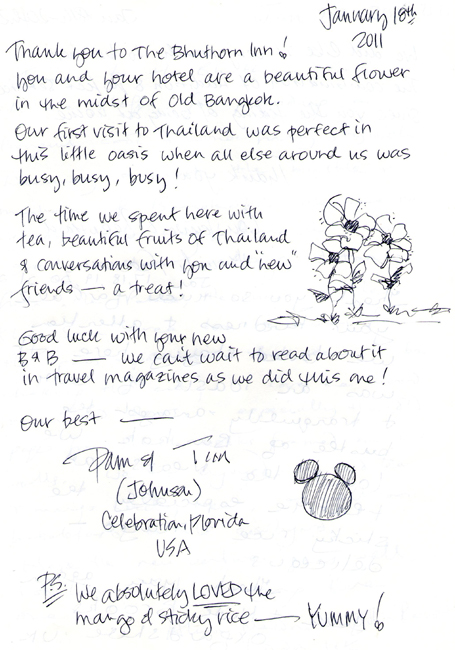 January 18th
2011
Thank you to The Bhuthorn Inn!
you and your hotel are a beautiful flower
in the midst of Old Bangkok.
Our first visit to Thailand was perfect in
this little oasis when all else around us was
busy, busy, busy!
The time we spent here with
tea, beautiful fruits of Thailand
& conversations with you and "new"
friends — a treat!
Good luck with your new
B&B — we can't wait to read about it
in travel magazines as we did this one!
Our best —
Pam & Tim
(Johnson)
Celebration, Florida
USA
P.S. We absolutely LOVED the
mango & sticky rice — YUMMY!